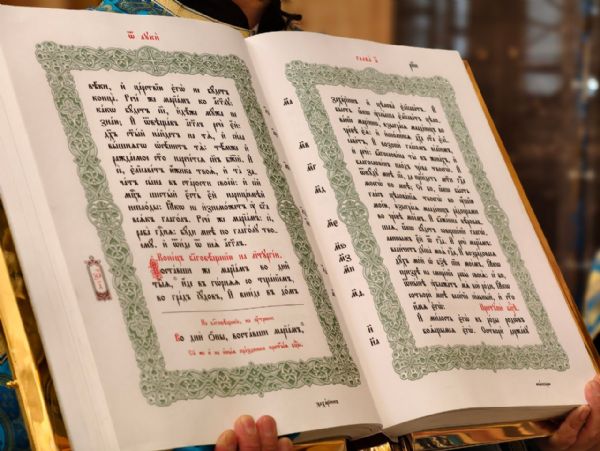 Ѿ лꙋки́
вѣ́ки, и҆ ца́рствїю є҆гѡ̀ не бꙋ́детъ
конца̀. Рече́ же мр҃їа́мь ко а҆́гг҃лꙋ:
ка́кѡ бꙋ́детъ сїѐ, и҆дѣ́же мꙋ́жа не
зна́ю; И҆ ѿвѣща́въ а҆́гг҃лъ речѐ є҆́й:
дх҃ъ ст҃ы́й на́йдетъ на тѧ̀, и҆ си́ла
вы́шнѧгѡ ѡ҆сѣни́тъ тѧ̀: тѣ́мже и҆
ражда́емое ст҃о нарече́тсѧ сн҃ъ бж҃їй. И҆
сѐ, є҆лїсаве́ть ю҆́жика твоѧ̀, и҆ та̀ за-
ча́тъ сы́на въ ста́рости свое́й: и҆ се́й
мцⷭ҇ъ шесты́й є҆́сть є҆́й нарица́емѣй
непло́ды: Ꙗ҆́кѡ не и҆знемо́жетъ ᲂу҆ бг҃а
всѧ́къ глаго́лъ. Рече́ же мр҃їа́мь: сѐ,
раба̀ гдⷭ҇нѧ: бꙋ́ди мнѣ̀ по глаго́лꙋ тво-
емꙋ̀. и҆ ѿи́де ѿ неѧ̀ а҆́гг҃лъ.
Коне́цъ бл҃говѣ́щенїю на лїтꙋргі́и.
Воста́вши же мр҃їа́мь во дни̑
ты̑ѧ, и҆́де въ гѡ́рнѧѧ со тща́нїемъ,
во гра́дъ і҆ꙋ́довъ. И҆ вни́де въ до́мъ
На бл҃говѣ́щенїе, на ᲂу҆́трени:
Во дни̑ ѡ҆́ны, воста́вши мр҃їа́мь,
заха́рїинъ
Глава̀ а҃
заха́рїинъ, и҆ цѣлова̀ є҆лїсаве́ть. И҆
бы́сть ꙗ҆́кѡ ᲂу҆слы́ша є҆лїсаве́ть цѣло-
ва́нїе мр҃і́ино, взыгра́сѧ младе́нецъ во
чре́вѣ є҆ѧ̀: и҆ и҆спо́лнисѧ дх҃а ст҃а
є҆лїсаве́ть: И҆ возопѝ гла́сомъ ве́лїимъ
и҆ речѐ: бл҃гослове́на ты̀ въ жена́хъ, и҆
бл҃гослове́нъ пло́дъ чре́ва твоегѡ̀. И҆
ѿкꙋ́дꙋ мнѣ̀ сїѐ, да прїи́детъ мт҃и гдⷭ҇а
моегѡ̀ ко мнѣ̀; Се́ бо, ꙗ҆́кѡ бы́сть
гла́съ цѣлова́нїѧ твоегѡ̀ во ᲂу҆́шїю
моє́ю, взыгра́сѧ младе́нецъ ра́дощами
во чре́вѣ мое́мъ. И҆ бл҃же́нна вѣ́ровав-
шаѧ, ꙗ҆́кѡ бꙋ́детъ соверше́нїе гл҃г҃ѡ́-
ланнымъ є҆́й ѿ гдⷭ҇а. И҆ речѐ мр҃їа́мь:
вели́читъ дꙋша̀ моѧ̀ гдⷭ҇а, И҆ возра́довасѧ
дꙋ́хъ мо́й ѡ҆ бз҃ѣ сп҃сѣ мое́мъ. Ꙗ҆́кѡ
призрѣ̀ на смире́нїе рабы̀ своеѧ̀: се́ бо,
ѿнн҃ѣ ᲂу҆блажа́тъ мѧ̀ всѝ ро́ди. Ꙗ҆́кѡ
сотворѝ мнѣ̀ вели́чїе си́льный, и҆ ст҃о
и҆́мѧ є҆гѡ̀.
И҆ ми́лость є҆гѡ̀ въ ро́ды родѡ́въ
боѧ́щымсѧ є҆гѡ̀. Сотворѝ держа́вꙋ